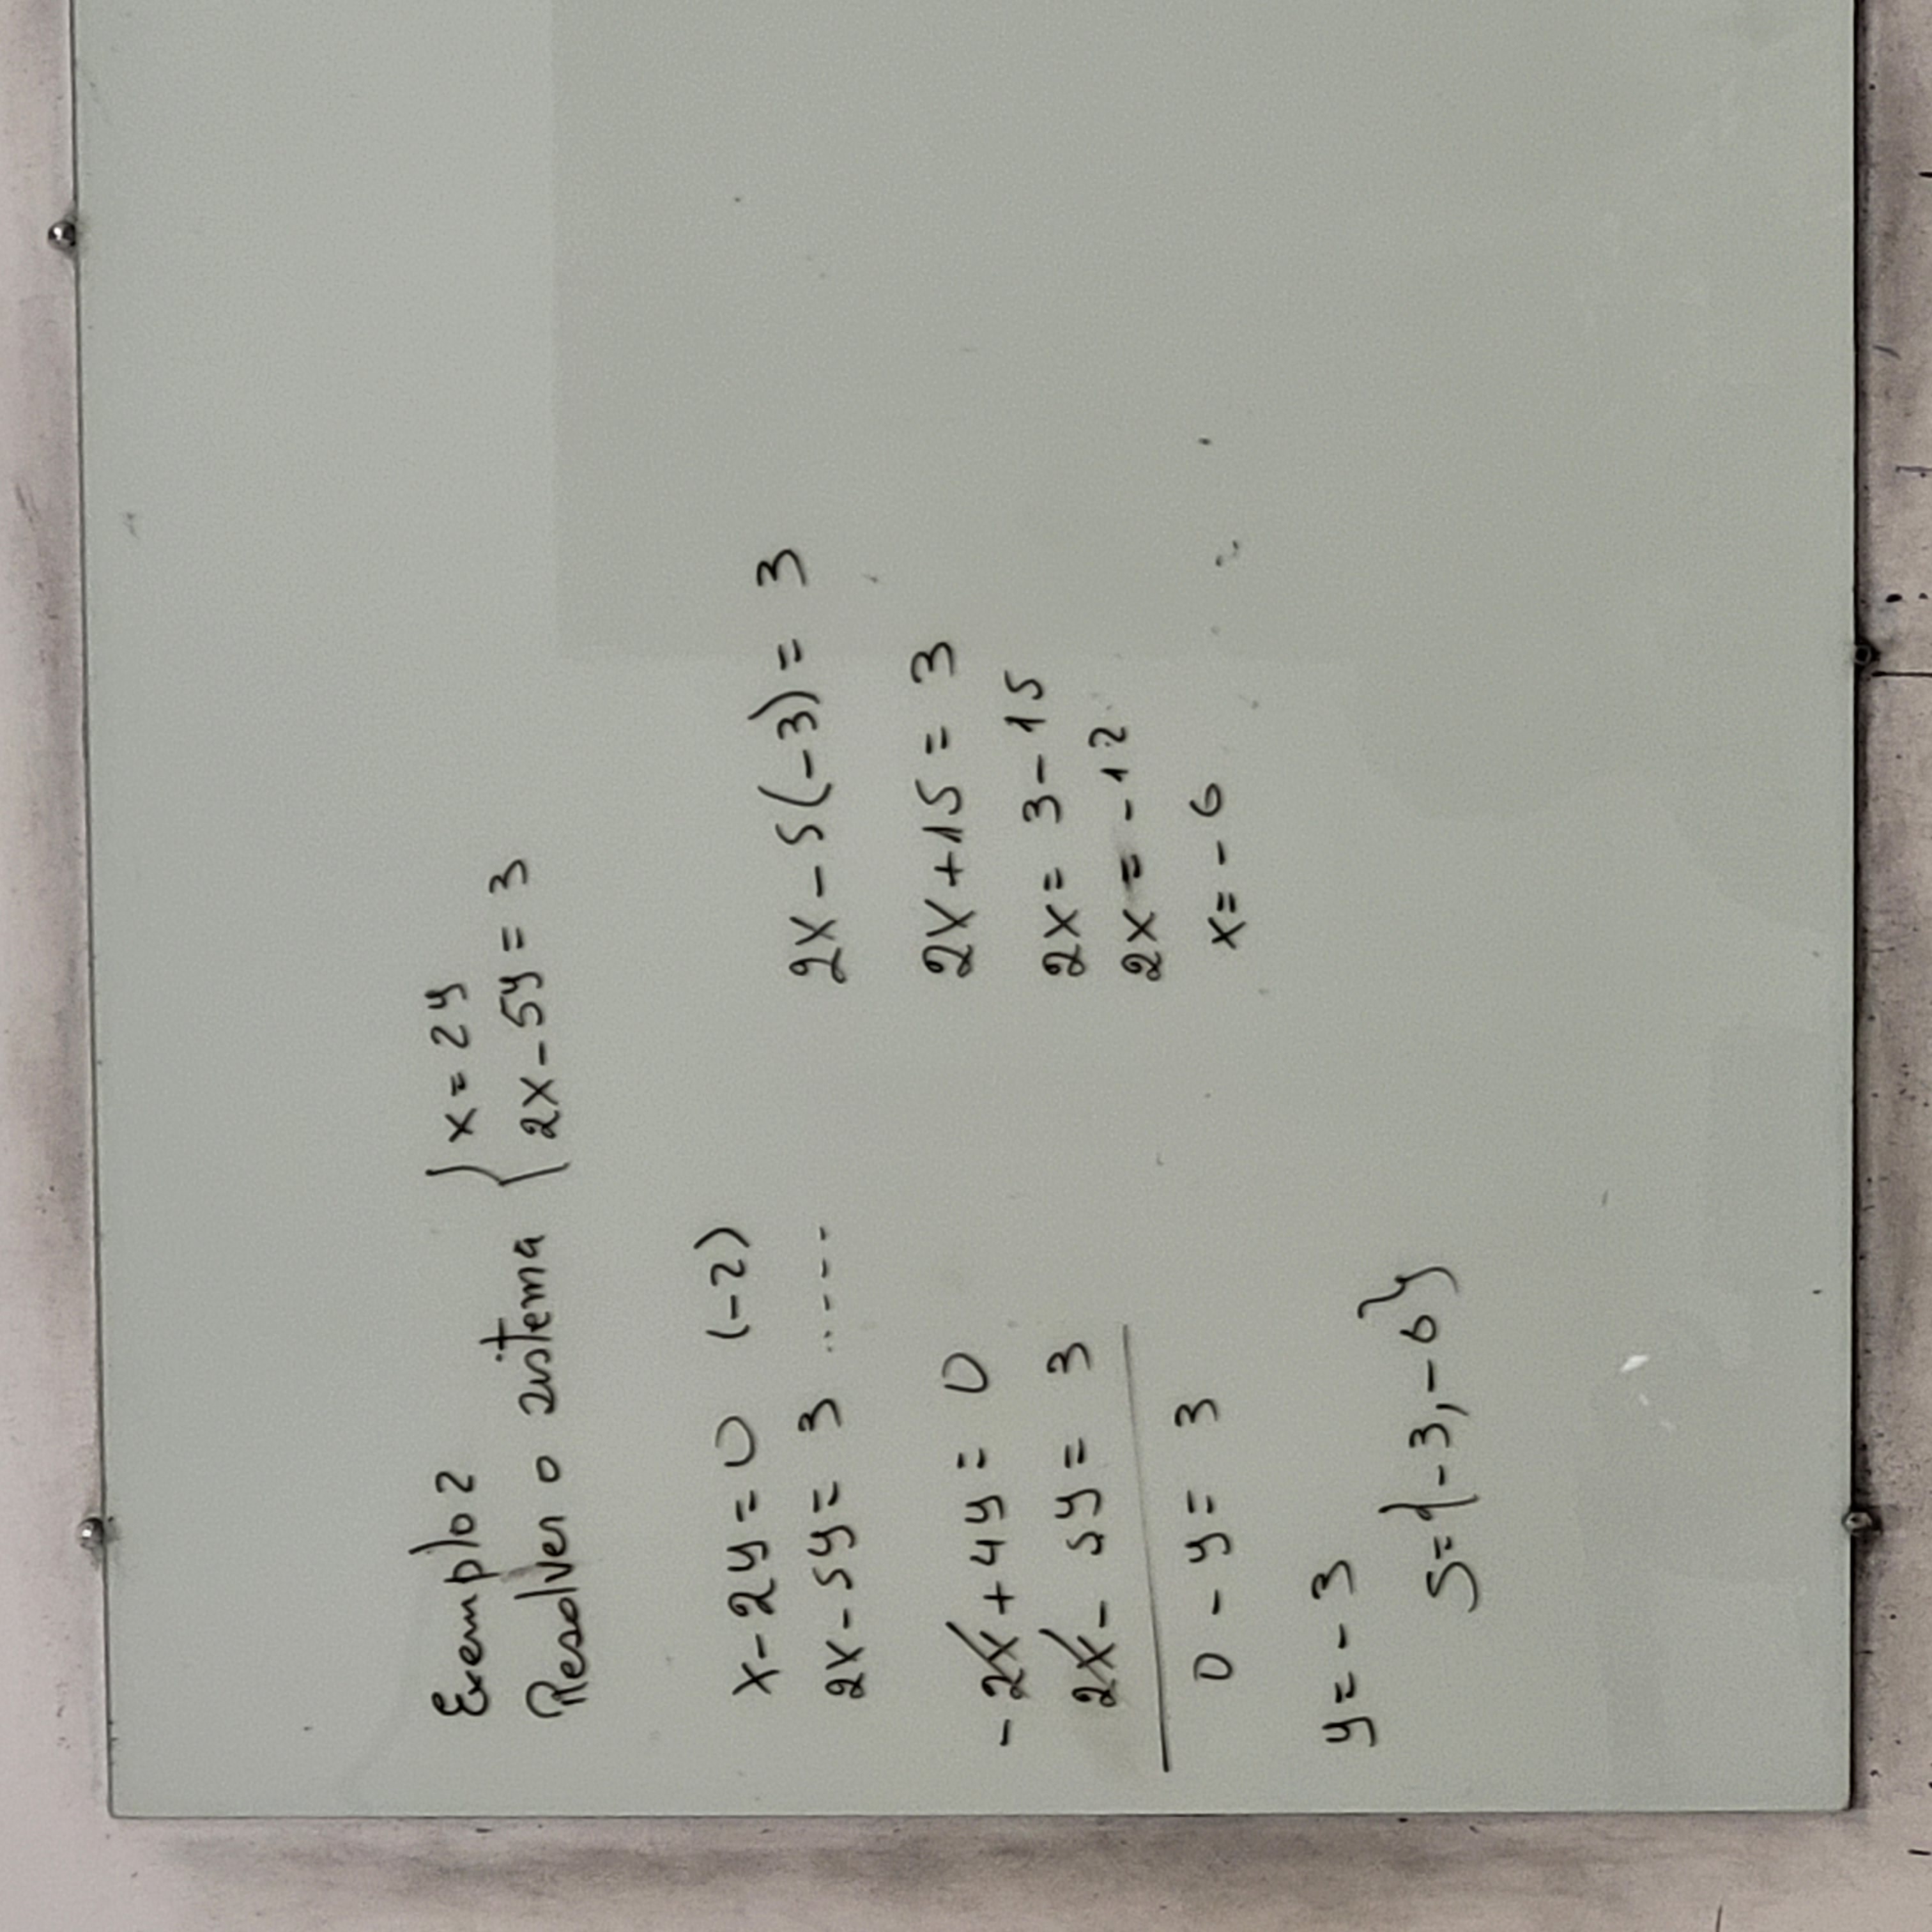 Exemplo 2
Resolver o sistema { x = 2y
2x - 5y = 3
x - 2y = 0 (-2)
2x - 5y = 3 ......
-2x + 4y = 0
2x - 5y = 3
0 - y = 3
y = -3
S = {-3, -6}
2x - 5(-3) = 3
2x + 15 = 3
2x = 3 - 15
2x = -12
x = -6